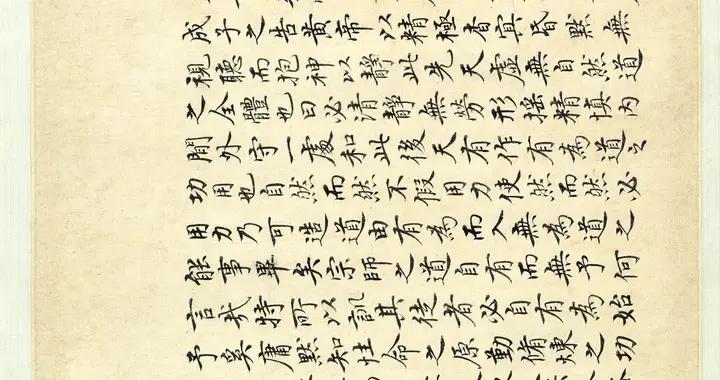 成子之告黃帝以精極杳冥昏默無
視聽而抱神以靜此先天虛無自然道
之全體也曰必清靜無勞形搖精慎內
閉外守一處和此後天有作有為道之
功用也自然而然不假用力使然而然必
用力乃可造道由有為而入無為道之
能事畢矣宗師之道自有而無予何
言哉特所以訓其徒者必自有為始
予奚庸默知性命之原勤脩煉之功